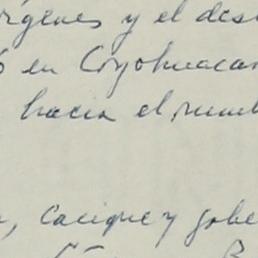 rígenes y el des
en Coyohuacan
hacia el rumb
, cacique y gobe